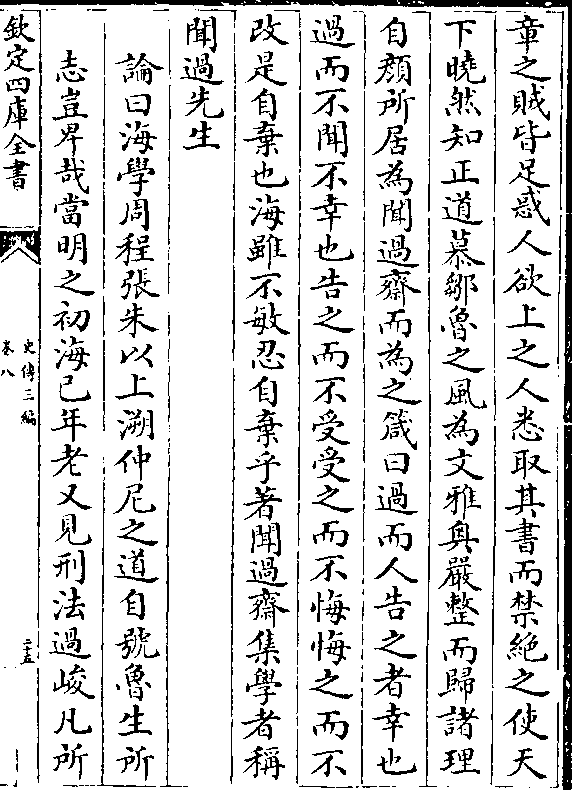 章之賊皆足惑人欲上之人悉取其書而禁絶之使天
下曉然知正道慕鄒魯之風為文雅奥嚴整而歸諸理
自顔所居為聞過齋而為之箴曰過而人告之者幸也
過而不聞不幸也告之而不受受之而不悔悔之而不
改是自棄也海雖不敏忍自棄乎著聞過齋集學者稱
聞過先生
論曰海學周程張朱以上溯仲尼之道自號魯生所
志豈卑哉當明之初海已年老又見刑法過峻凡所
欽定四庫全書
史傳三編
卷八
二十五